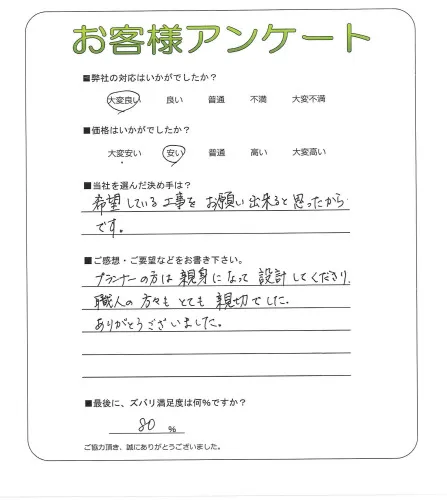 お客様アンケート
■弊社の対応はいかがでしたか？
大変良い 良い 普通 不満 大変不満
■価格はいかがでしたか？
大変安い 安い 普通 高い 大変高い
■当社を選んだ決め手は？
希望している工事をお願い出来ると思ったから
です。
■ご感想・ご要望などをお書き下さい。
プランナーの方は親身になって設計してくださり、
職人の方々もとても親切でした。
ありがとうございました。
■最後に、ズバリ満足度は何％ですか？
80 %
ご協力頂き、誠にありがとうございました。